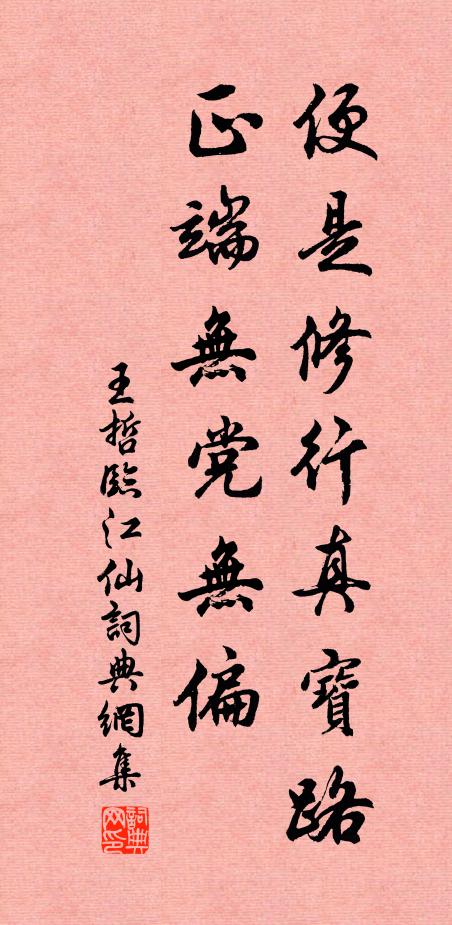 便是修行真寶路
正端無党無偏
王哲臨江仙詞典網集
詞典网印